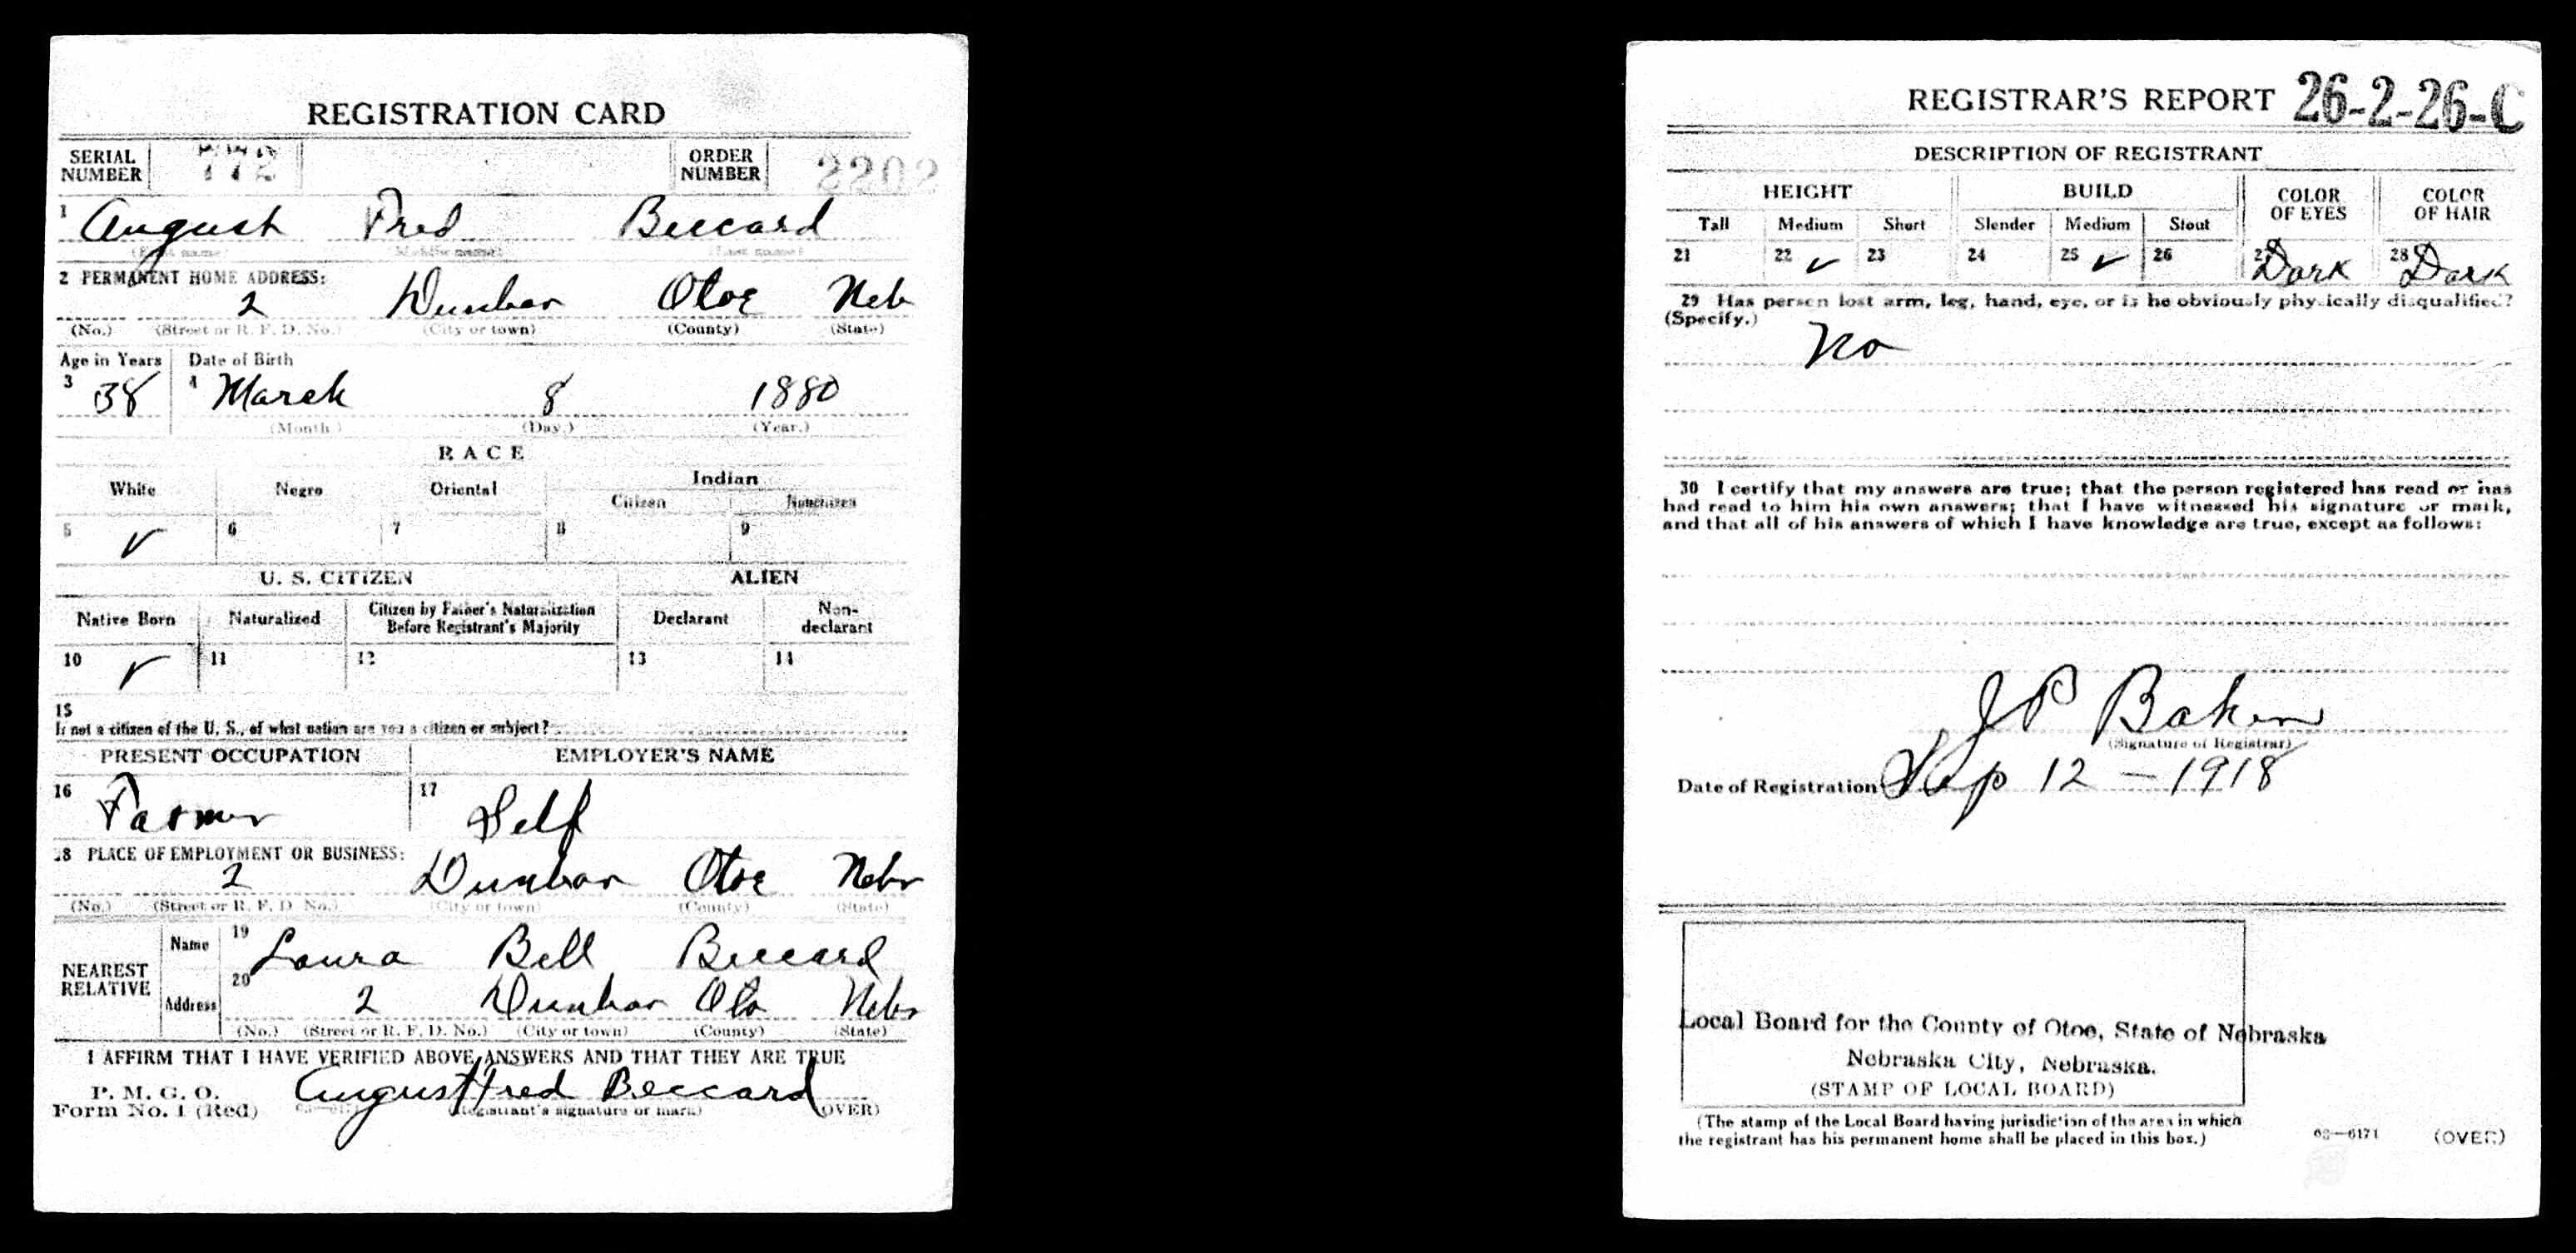 REGISTRATION CARD
SERIAL NUMBER 772 ORDER NUMBER 2202
1 August Fred Beccard
(First name) (Middle name) (Last name)
2 PERMANENT HOME ADDRESS:
2 Dunbar Otoe Neb
(No.) (Street or R. F. D. No.) (City or town) (County) (State)
Age in Years Date of Birth
3 38 4 March 8 1880
(Month.) (Day.) (Year.)
RACE
White Negro Oriental Indian
Citizen Noncitizen
5 ✓ 6 7 8 9
U. S. CITIZEN ALIEN
Native Born Naturalized Citizen by Father's Naturalization Before Registrant's Majority Declarant Non-declarant
10 ✓ 11 12 13 14
15
If not a citizen of the U. S., of what nation are you a citizen or subject?
PRESENT OCCUPATION EMPLOYER'S NAME
16 Farmer 17 Self
18 PLACE OF EMPLOYMENT OR BUSINESS:
2 Dunbar Otoe Nebr
(No.) (Street or R. F. D. No.) (City or town) (County) (State)
NEAREST RELATIVE
Name 19 Laura Bell Beccard
Address 20 2 Dunbar Oto Nebr
(No.) (Street or R. F. D. No.) (City or town) (County) (State)
I AFFIRM THAT I HAVE VERIFIED ABOVE ANSWERS AND THAT THEY ARE TRUE
P. M. G. O.
Form No. 1 (Red) August Fred Beccard
(Registrant's signature or mark) (OVER)
REGISTRAR'S REPORT 26-2-26-C
DESCRIPTION OF REGISTRANT
HEIGHT BUILD COLOR OF EYES COLOR OF HAIR
Tall Medium Short Slender Medium Stout
21 22 ✓ 23 24 25 ✓ 26 27 Dark 28 Dark
29 Has person lost arm, leg, hand, eye, or is he obviously physically disqualified?
(Specify.)
No
30 I certify that my answers are true; that the person registered has read or has
had read to him his own answers; that I have witnessed his signature or mark,
and that all of his answers of which I have knowledge are true, except as follows:
J P Baker
(Signature of Registrar)
Date of Registration Sep 12 - 1918
Local Board for the County of Otoe, State of Nebraska
Nebraska City, Nebraska.
(STAMP OF LOCAL BOARD)
(The stamp of the Local Board having jurisdiction of the area in which
the registrant has his permanent home shall be placed in this box.)
03—6171 (OVER)